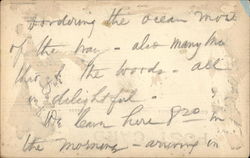 bordering the ocean most
of the way - also many mi
thro' the woods - all
is delightful -
We leave here 8²⁰ in
the morning - arriving in